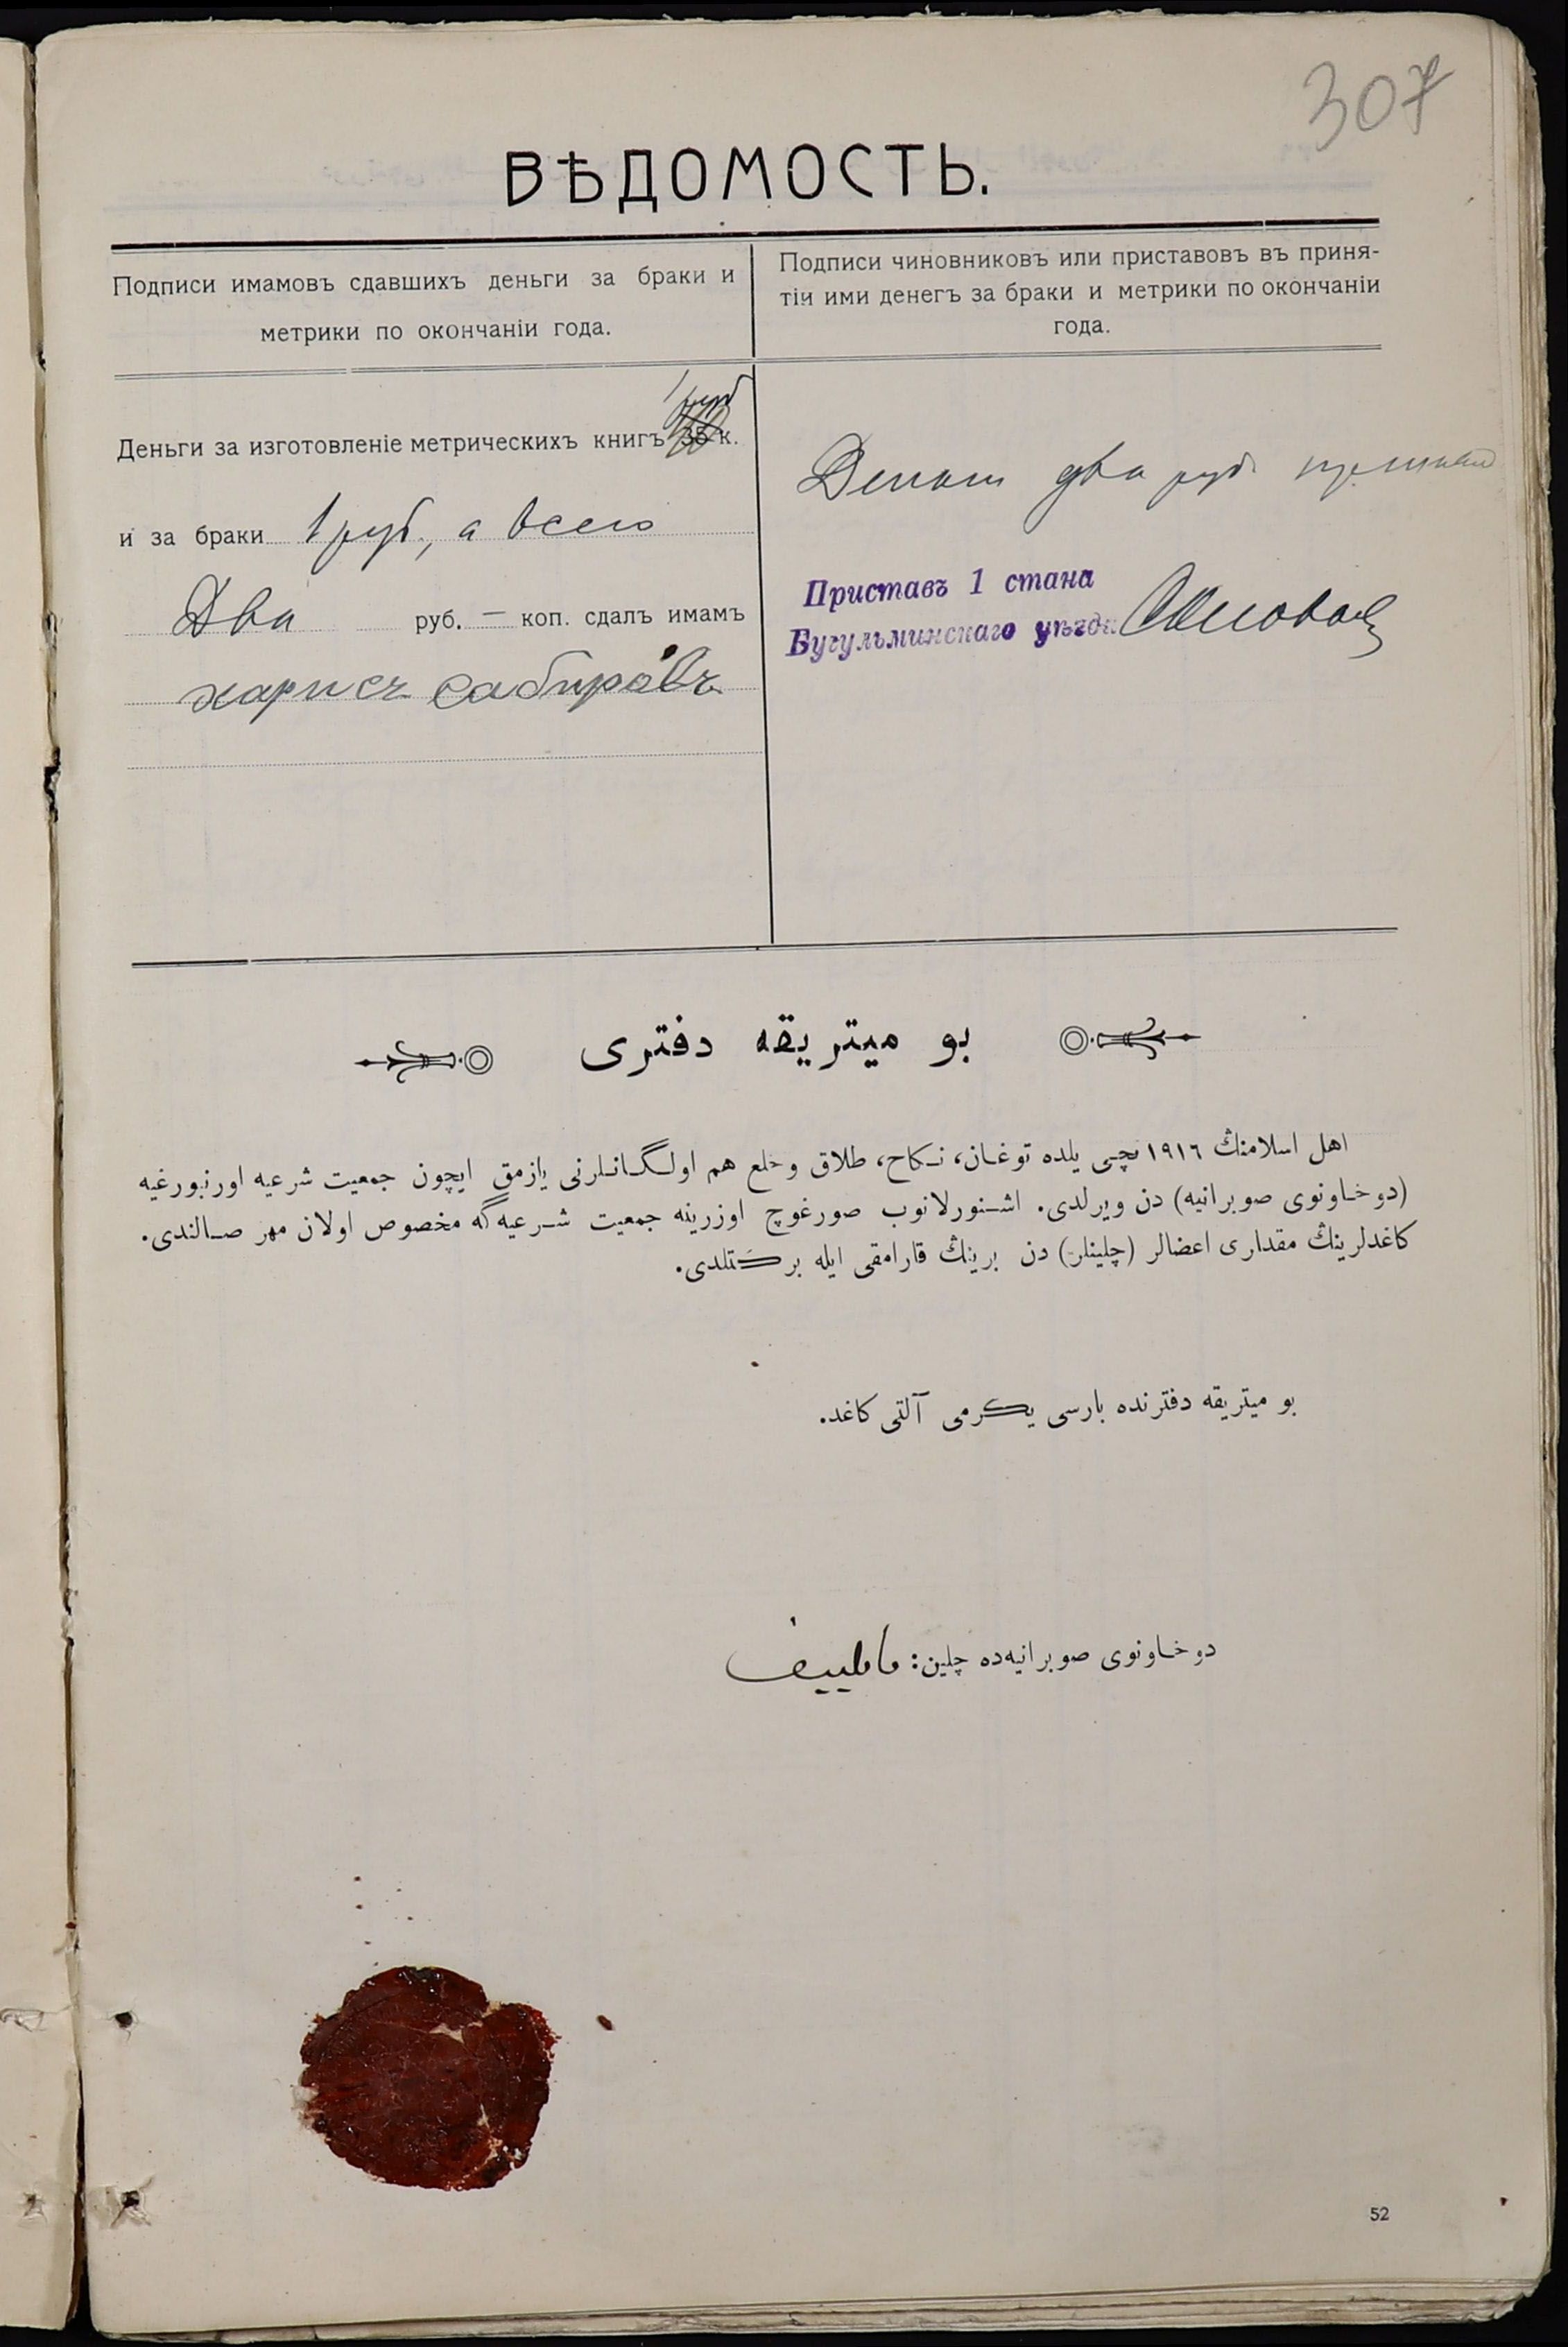 307
ВѢДОМОСТЬ.
Подписи имамовъ сдавшихъ деньги за браки и
метрики по окончаніи года.
Подписи чиновниковъ или приставовъ въ приня-
тіи ими денегъ за браки и метрики по окончаніи
года.
1 руб
Деньги за изготовленіе метрическихъ книгъ 35 к.
и за браки 1 руб., а всего
Два руб. — коп. сдалъ имамъ
харисъ сабировъ
два руб.
Приставъ 1 стана
Бугульминскаго уѣзда
بو ميتريقه دفترى
اهل اسلامنڭ ١٩١٦ نچى يلده توغان، نكاح، طلاق وخلع هم اولگانلرنى يازمق ايچون جمعيت شرعيه اورنبورغيه
(دوخاونوى صوبرانيه) دن ويرلدى. اشنورلانوب صورغوچ اوزرينه جمعيت شرعيه گه مخصوص اولان مهر صالندى.
كاغدلرينڭ مقدارى اعضالر (چلينلر) دن برينڭ قارامقى ايله بركتلدى.
بو ميتريقه دفترنده بارسى يكرمى آلتى كاغد.
دوخاونوى صوبرانيه‌ده چلين:
52